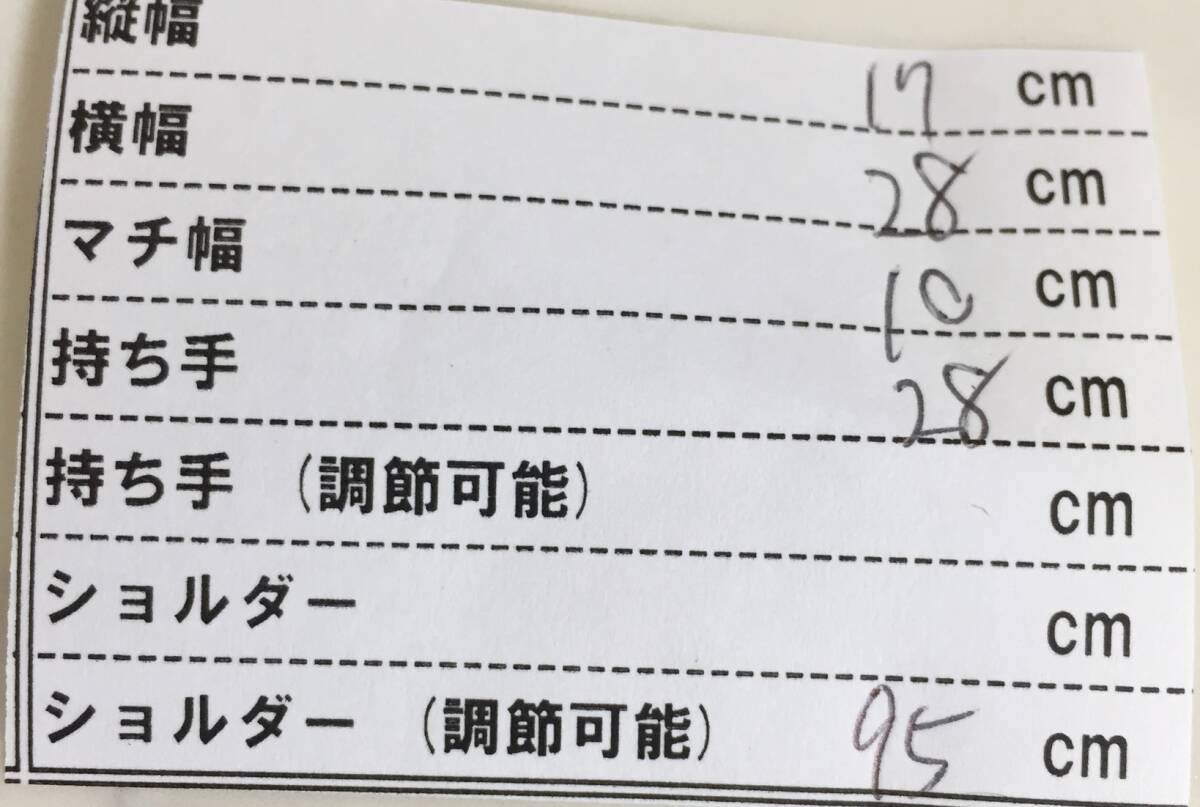 縦幅 17 cm
横幅 28 cm
マチ幅 10 cm
持ち手 28 cm
持ち手 (調節可能) cm
ショルダー cm
ショルダー (調節可能) 95 cm